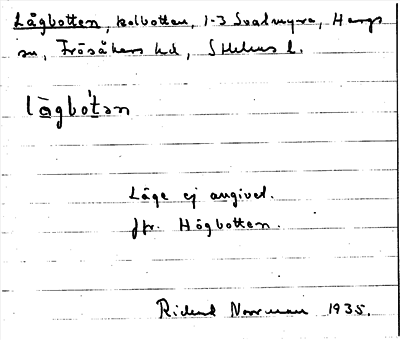 Lågbotten, kolbotten, 1-3 Svalmyra, Hargs
sn, Frösåkers hd, Sthlms l.
lågbo't​ən
Läge ej angivet.
Jfr. Högbotten.
Rickard Norrman 1935.